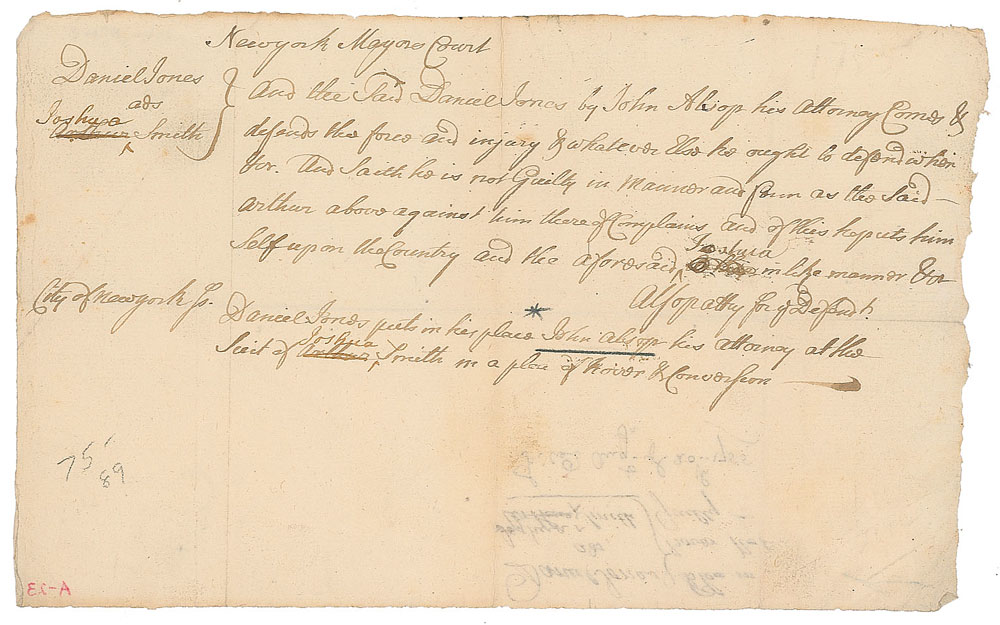 Newyork Mayors Court
Daniel Jones
ads
Joshua
Arthur Smith
And the Said Daniel Jones by John Alsop his attorney Comes &
defends the force and injury & whatever Else he ought to defend when
&cr. And Saith he is not Guilty in Manner and form as the Said
Arthur above against him thereof Complains and of this he puts him
Joshua
Self upon the Country and the aforesaid in like manner &cr
Alsop atty for ye Defendt
City of Newyork Ss.
Daniel Jones puts in his place John Alsop his attorney at the
Joshua
Suit of Arthur Smith in a plea of trover & Conversion
75
89
A-23